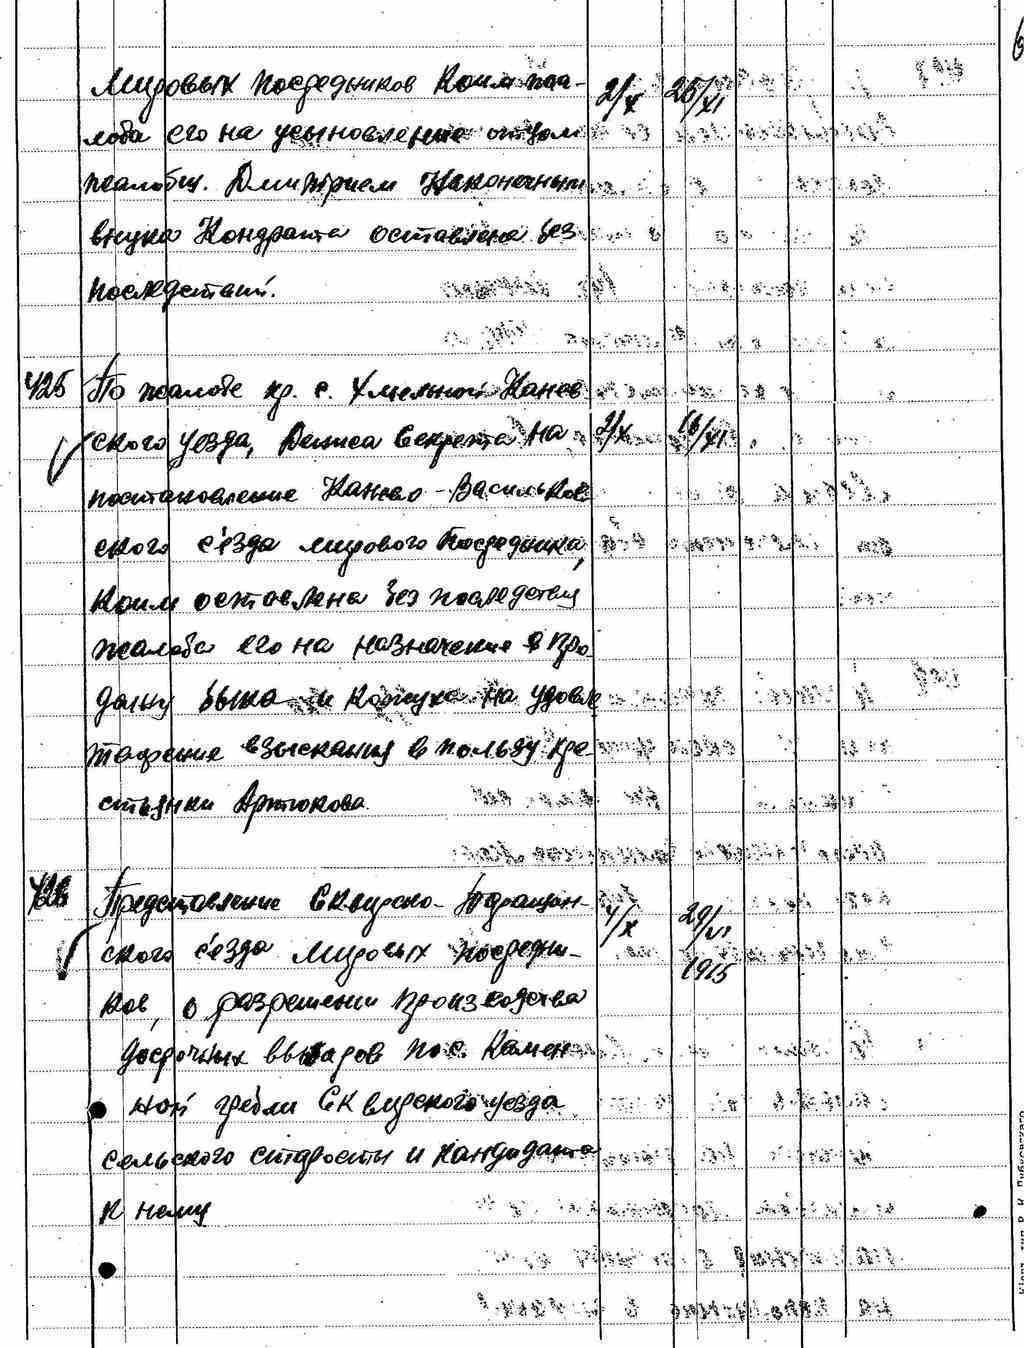 Мировых Посредников Коим жа- 2/X 26/XI
лоба его на усыновление отцом
жалобщ. Дмитрием Наконечным
внука Кондрата оставлена без
последствий.
425 По жалобе кр. с. Хмельной Канев
ского уезда, Дениса Секрета на 2/X 16/XI
постановление Канево-Васильков
ского с'езда мирового Посредника,
Коим оставлена без последствия
жалоба его на назначение в про-
дажу быка и кожуха на удовле
творение взыскания в пользу кре
стьянки Артюхова
426 Представление Сквирско-Таращан- 4/X 29/VI
ского с'езда Мировых посредни- 1915
ков, о разрешении производства
досрочных выборов по с. Камен
ной гребли Сквирского уезда
сельского старосты и кандидата
к нему